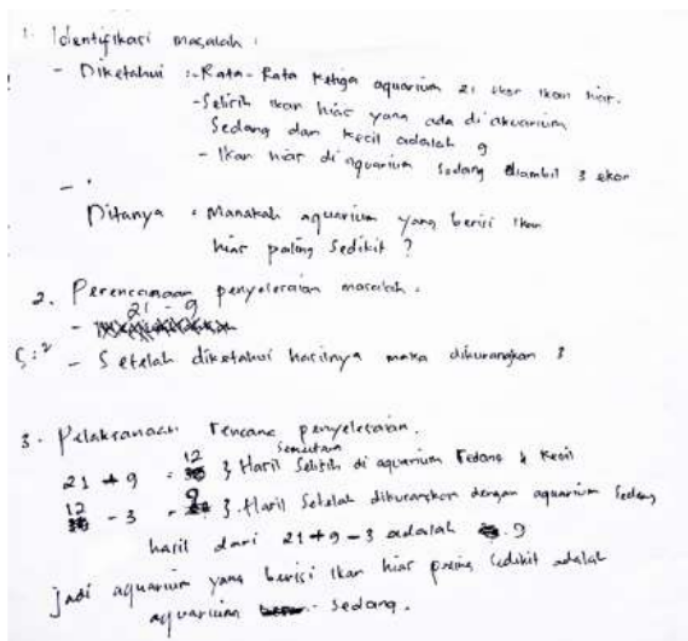 1. Identifikasi masalah :
- Diketahui :- Rata-Rata ketiga aquarium 21 ekor ikan hias.
- Selisih ikan hias yang ada di akuarium
Sedang dan kecil adalah 9
- Ikan hias di aquarium Sedang diambil 3 ekor
-
Ditanya : Manakah aquarium yang berisi ikan
hias paling Sedikit ?
2. Perencanaan penyelesaian masalah.
- 21 - 9
- Setelah diketahui hasilnya maka dikurangkan 3
3. Pelaksanaan rencana penyelesaian.
21 + 9 = 12 } Hasil Sementara Selisih di aquarium Sedang & Kecil
12 - 3 = 9 } Hasil Setelah dikurangkan dengan aquarium Sedang
hasil dari 21 + 9 - 3 adalah 9
jadi aquarium yang berisi ikan hias paling Sedikit adalah
aquarium Sedang.